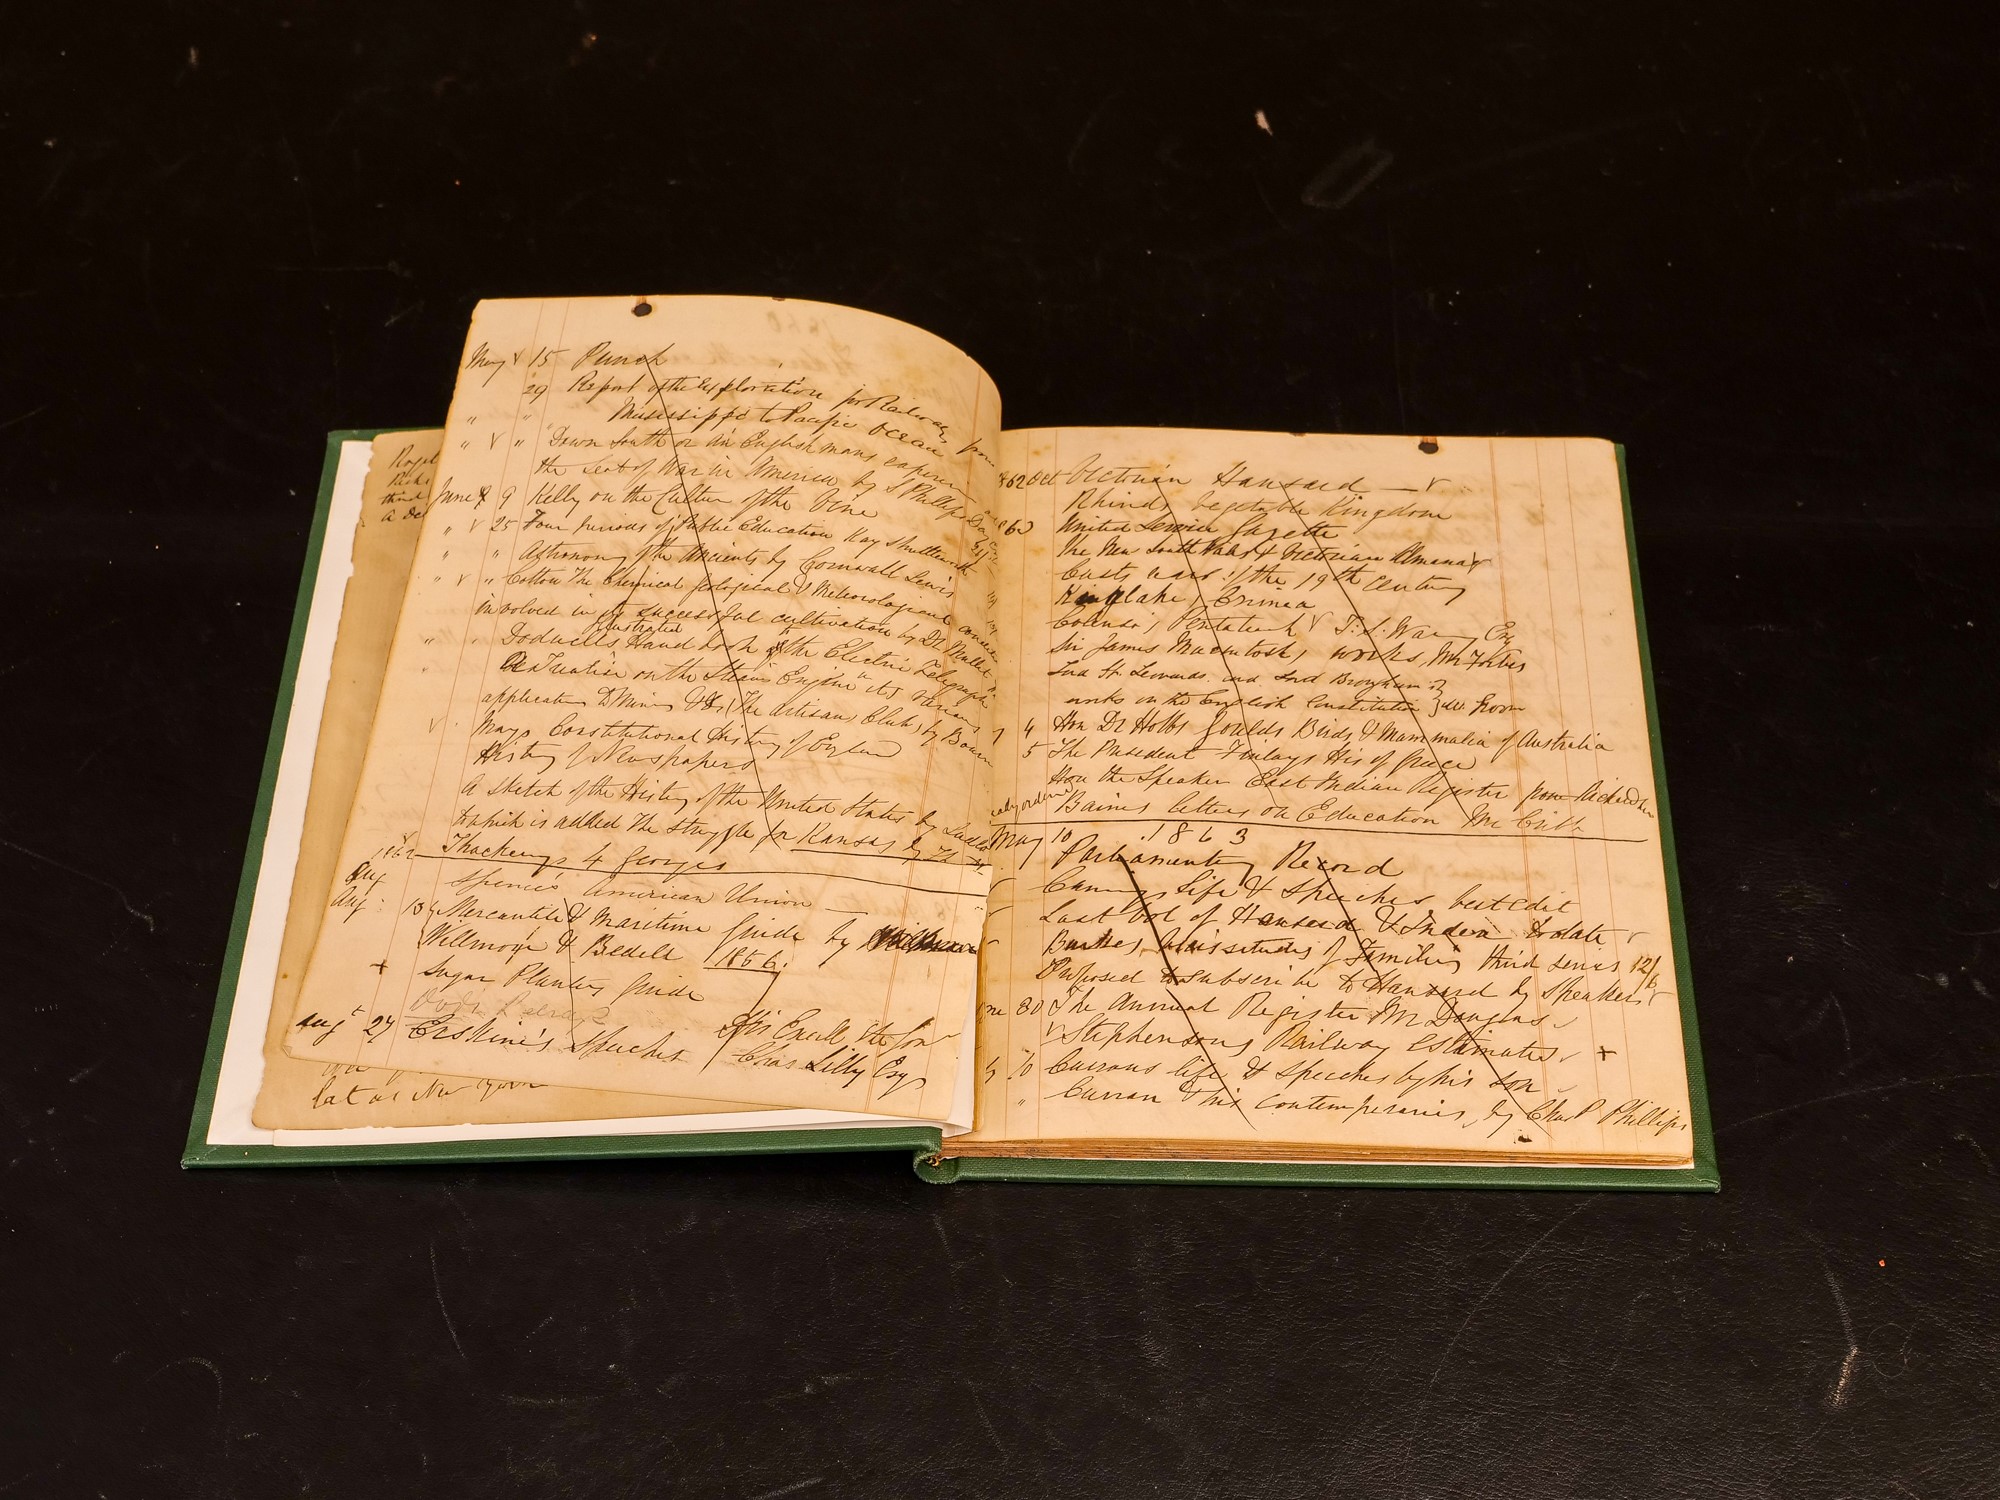 May 15 Punch
29 Report of the Exploration for Railways from
" " Mississippi to Pacific Ocean
" " Down South or an Englishmans experience
the Seat of War in America by S Phillips Day
June 9 Kelly on the Culture of the Vine
" 25 Four periods of Public Education Kay Shuttleworth
" " Astronomy of the Ancients by Cornwall Lewis
" " Cotton The Chemical geological & Meteorological
involved in its successful cultivation by Dr Mallet
illustrated
" " Dodwells Hand book of the Electric Telegraph
A Treatise on the Steam Engine its various
application to Mines &c (The artisans Club) by Bourn
Mays Constitutional History of England
History of Newspapers
A sketch of the History of the United States by Ludlow
to which is added The struggle for Kansas by
Thackerays 4 Georges
1862
Aug Spence's American Union
Aug 18 Mercantile & Maritime Guide by
Willmore & Bedell 1856.
+ Sugar Planters Guide
Aug 27 Erskine's Speeches His Excell the Gov
Chas Lilly Esq
let as New
Royal
third
62 Oct Victorian Hansard
Rhinds Vegetable Kingdom
United Service Gazette
The New South Wales & Victorian Almanac
Custs wars of the 19th Century
Kinglake, Crimea
Colenso's Pentateuch T. S. War Esq
Sir James Macintosh, works, Mr Forbes
Lord St Leonards and Lord Brougham's
works on the English Constitution
4 Hon Dr Hobbs Goulds Birds & Mammalia of Australia
5 The President Finlays His of Greece
Hon the Speaker East Indian Register from Richardson
Baines letters on Education Mr Cribb
May 10 1863
Parliamentary Record
Cannings Life & Speeches best edit
Last Vol of Hansard & Index to date
Burkes Vicissitudes of Families third series 12/6
Proposed to subscribe to Hansard by Speaker
30 The Annual Register Mr Douglas
Stephensons Railway Estimates +
10 Currans life & speeches by his son
" Curran & his contemporaries, by Chas Phillips